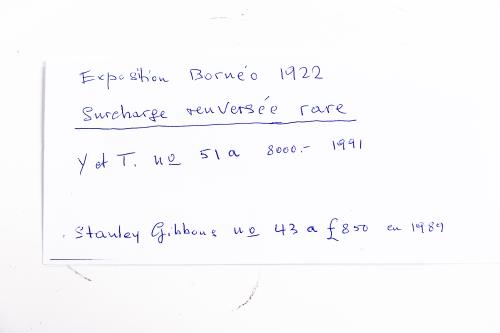 Exposition Bornéo 1922
Surcharge renversée rare
Y et T. no 51a 8000.- 1991
Stanley Gibbons no 43a £850 en 1989